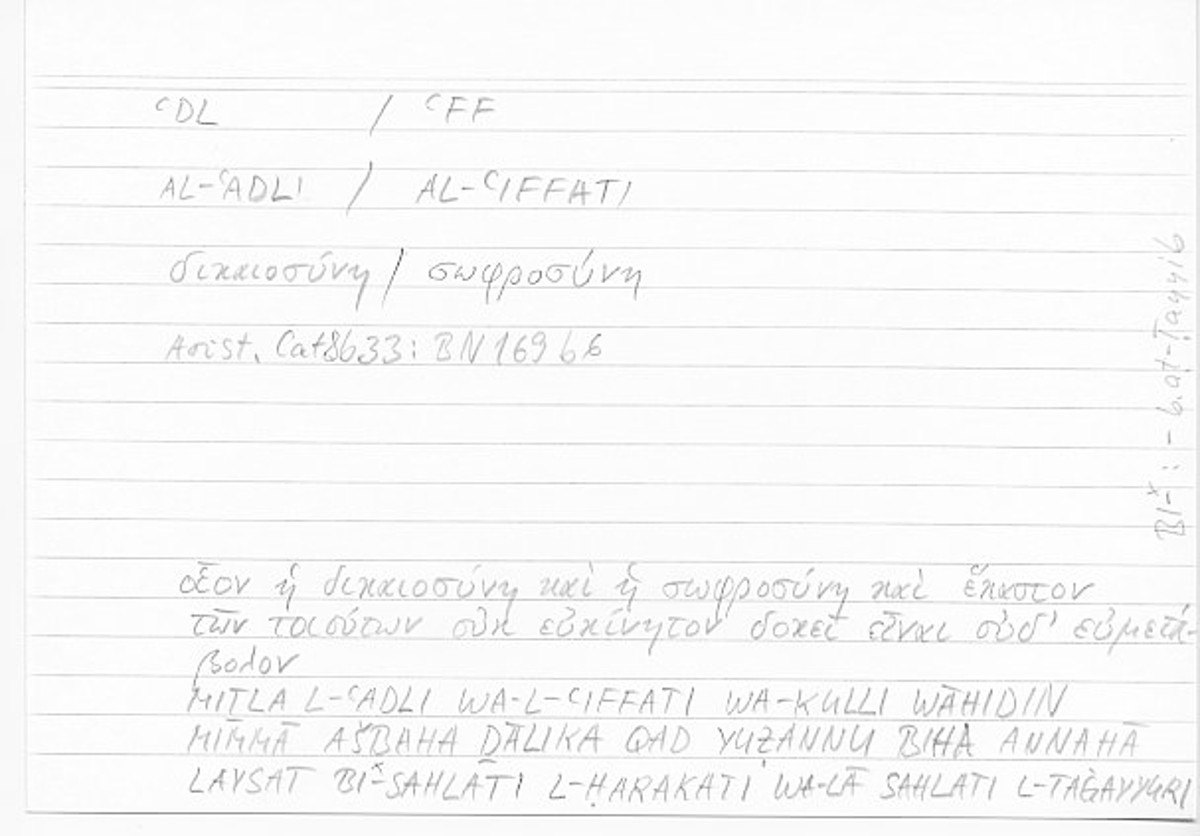 ʿDL / ʿFF
AL-ʿADLI / AL-ʿIFFATI
δικαιοσύνη / σωφροσύνη
Arist. Cat 8b33 : BN 169 b6
οἷον ἡ δικαιοσύνη καὶ ἡ σωφροσύνη καὶ ἕκαστον
τῶν τοιούτων οὐκ εὐκίνητον δοκεῖ εἶναι οὐδ' εὐμετά-
βολον
MIṮLA L-ʿADLI WA-L-ʿIFFATI WA-KULLI WĀHIDIN
MIMMĀ AŠBAHA ḎĀLIKA QAD YUẒANNU BIHĀ ANNAHĀ
LAYSAT BI-ˣSAHLATI L-ḤARAKATI WA-LĀ SAHLATI L-TAĠAYYURI
BI-ˣ : - b. aṭ-Ṭayyib